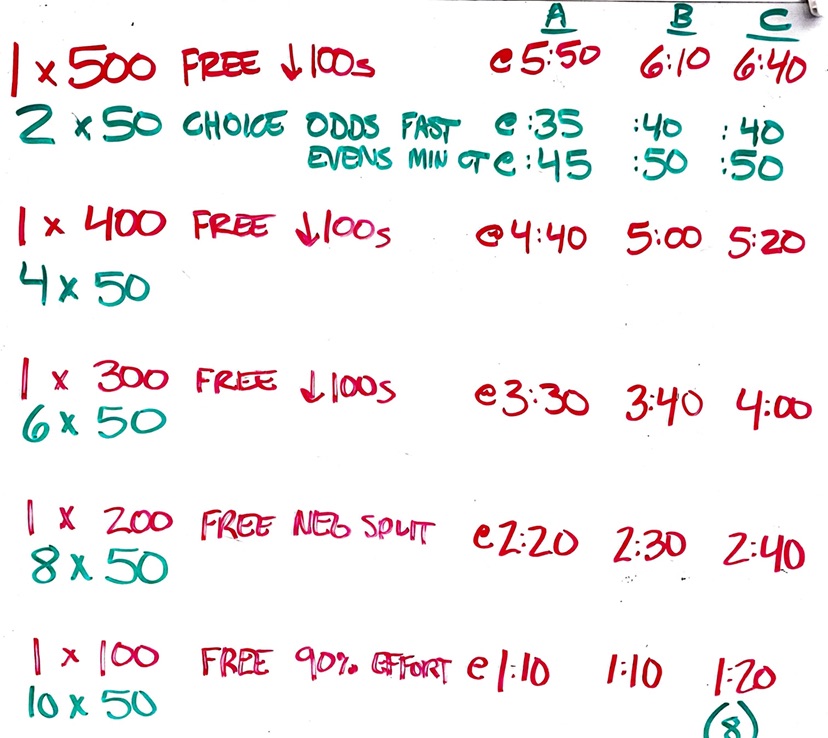 A B C
1 x 500 FREE ↓100s @ 5:50 6:10 6:40
2 x 50 CHOICE ODDS FAST @ :35 :40 :40
EVENS MIN CT @ :45 :50 :50
1 x 400 FREE ↓100s @ 4:40 5:00 5:20
4 x 50
1 x 300 FREE ↓100s @ 3:30 3:40 4:00
6 x 50
1 x 200 FREE NEG SPLIT @ 2:20 2:30 2:40
8 x 50
1 x 100 FREE 90% EFFORT @ 1:10 1:10 1:20
10 x 50 (8)